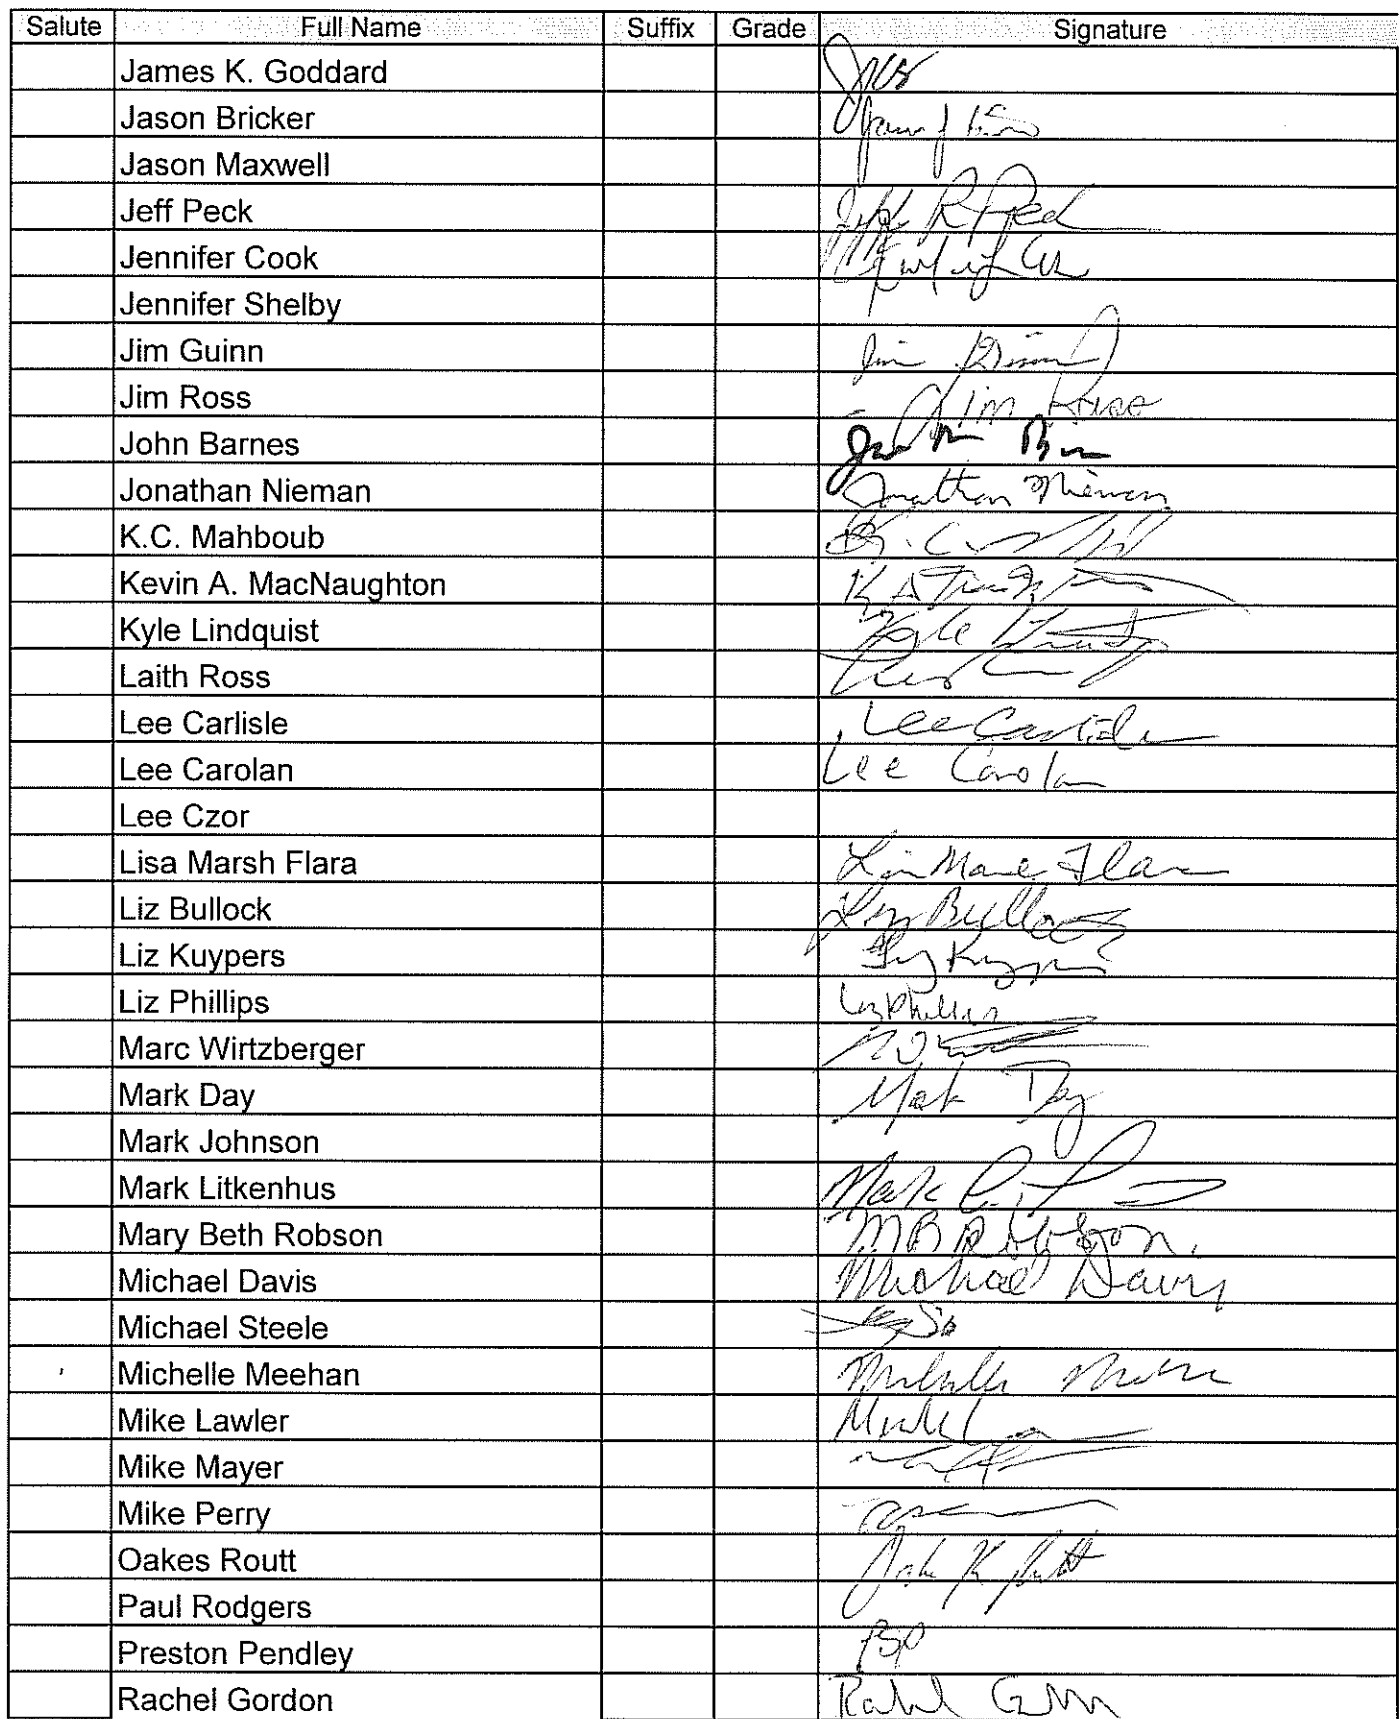 Salute Full Name Suffix Grade Signature
James K. Goddard
Jason Bricker
Jason Maxwell
Jeff Peck
Jennifer Cook
Jennifer Shelby
Jim Guinn Jim
Jim Ross Jim Ross
John Barnes
Jonathan Nieman Jonathan Nieman
K.C. Mahboub K.C.
Kevin A. MacNaughton K A
Kyle Lindquist Kyle
Laith Ross
Lee Carlisle Lee Carlisle
Lee Carolan Lee Carolan
Lee Czor
Lisa Marsh Flara Flara
Liz Bullock Liz Bullock
Liz Kuypers Liz Kuypers
Liz Phillips Liz Phillips
Marc Wirtzberger
Mark Day Mark Day
Mark Johnson
Mark Litkenhus Mark
Mary Beth Robson MB Robson
Michael Davis Michael Davis
Michael Steele
Michelle Meehan Michelle
Mike Lawler
Mike Mayer
Mike Perry
Oakes Routt
Paul Rodgers
Preston Pendley PSP
Rachel Gordon Rachel